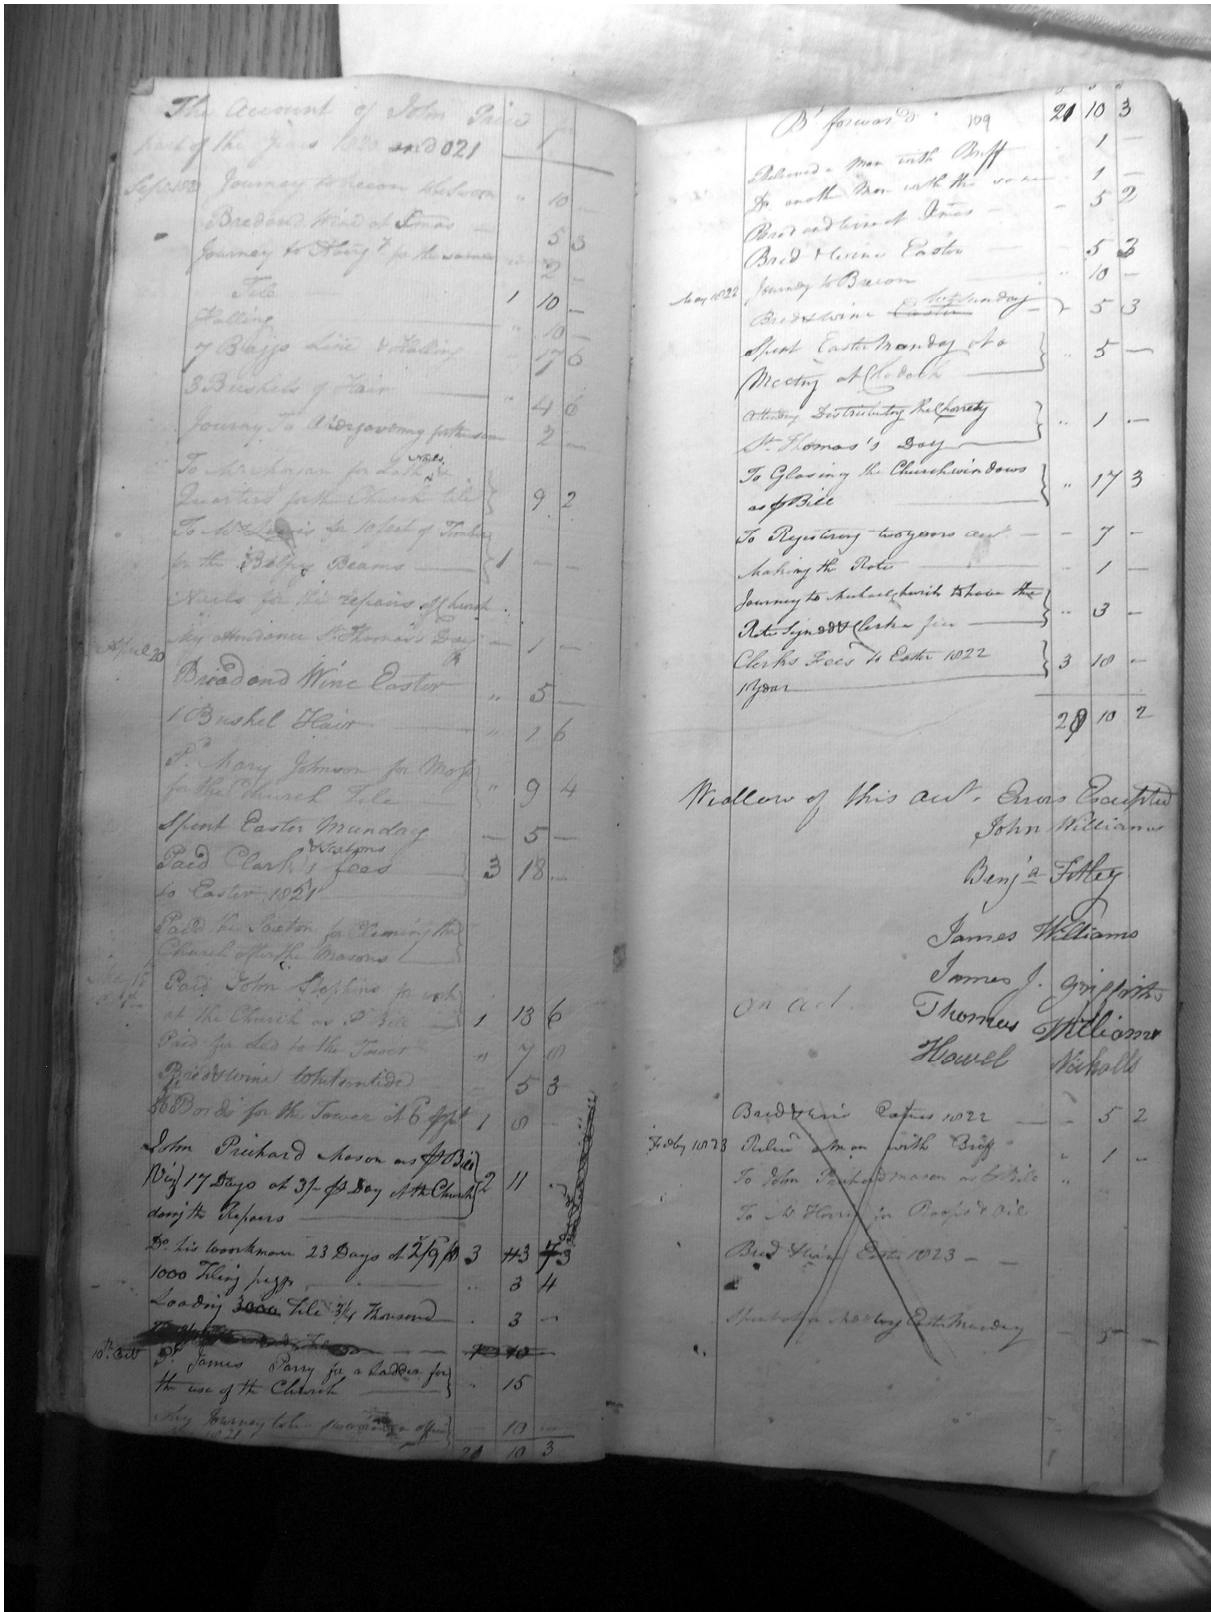 The Account of John Price
part of the Years 1820 and 021
Sepr 1820 Journey to Brecon " 10 —
Bred and Wine at Xmas — 5 3
Journey to for the same 2 —
Tile 1 10 —
Halling " 10 —
7 Baggs Lime & Halling 17 6
3 Bushels of Hair " 4 6
Journey To Abergavenny for the same 2 —
To Mr Morgan for Lath Nails &
Quarters for the Church tile 9 2
To Mr Lewis for 10 feet of Timber
for the Belfry Beams 1 — —
Nails for the repairs of Church
April 20 My attendance St Thomas's Day — 1 —
Bread and Wine Easter " 5 —
1 Bushel Hair " 1 6
Pd Mary Johnson for Moss
for the Church Tile " 9 4
Spent Easter Munday — 5 —
Paid Clark's & Sextons fees
to Easter 1821 3 18 —
Paid the Sexton for Cleaning the
Church after the Masons
Paid John Stephens for work
at the Church as P Bill 1 13 6
Paid for Led to the Tower " 7 8
Bred & wine Whitsuntide — 5 3
Bords for the Tower at 6 pr ft 1 8 —
John Prichard Mason as pr Bill
Viz 17 Days at 3/- pr Day at the Church 2 11 -
doing the Repairs
Do his Woorkman 23 Days at 2/9 pr D 3 3 3
1000 Tiling peggs " 3 4
Loading 3000 Tile 3/4 Thousend . 3 —
10th Feb Pd James Parry for a Ladder for
the use of the Church . 15
My Journey to office — 10 —
21 10 3
Bt forward 109 21 10 3
Relieved a Man with Briff 1 —
Do another Man with the same 1 —
Bread and wine at Xmas — - 5 2
Bred & wine Easter 5 3
May 1822 Journey to Brecon " 10 —
Bred & wine Easter Whitsunday - 5 3
Spent Easter Monday at a
Meeting at Clodock " 5 —
Attending Distributing the Chorrety
St Thomas's Day " 1 —
To Glasing the Church windows
as pr Bill " 17 3
To Registering two years act — - 7 —
Making the Rate - 1 —
Journey to Michaelchurch to have the
Rate Signed & Clerks fee " 3 —
Clerks Fees to Easter 1822
1 Year 3 18 —
29 10 2
We allow of this act. Errors Excepted
John Williams
Benja Filley
James Williams
James J. Griffiths
on act. Thomas Williams
Howel Nicholls
Bred & wine 1822 — - 5 2
Feby 1823 Reliev a Man with Briff " 1 "
To John Prichard mason as Bill "
To Mr Harris for Roops & Oil
Bred & wine Easter 1823 — —
Spent at a Meeting Easter Munday — 5 —